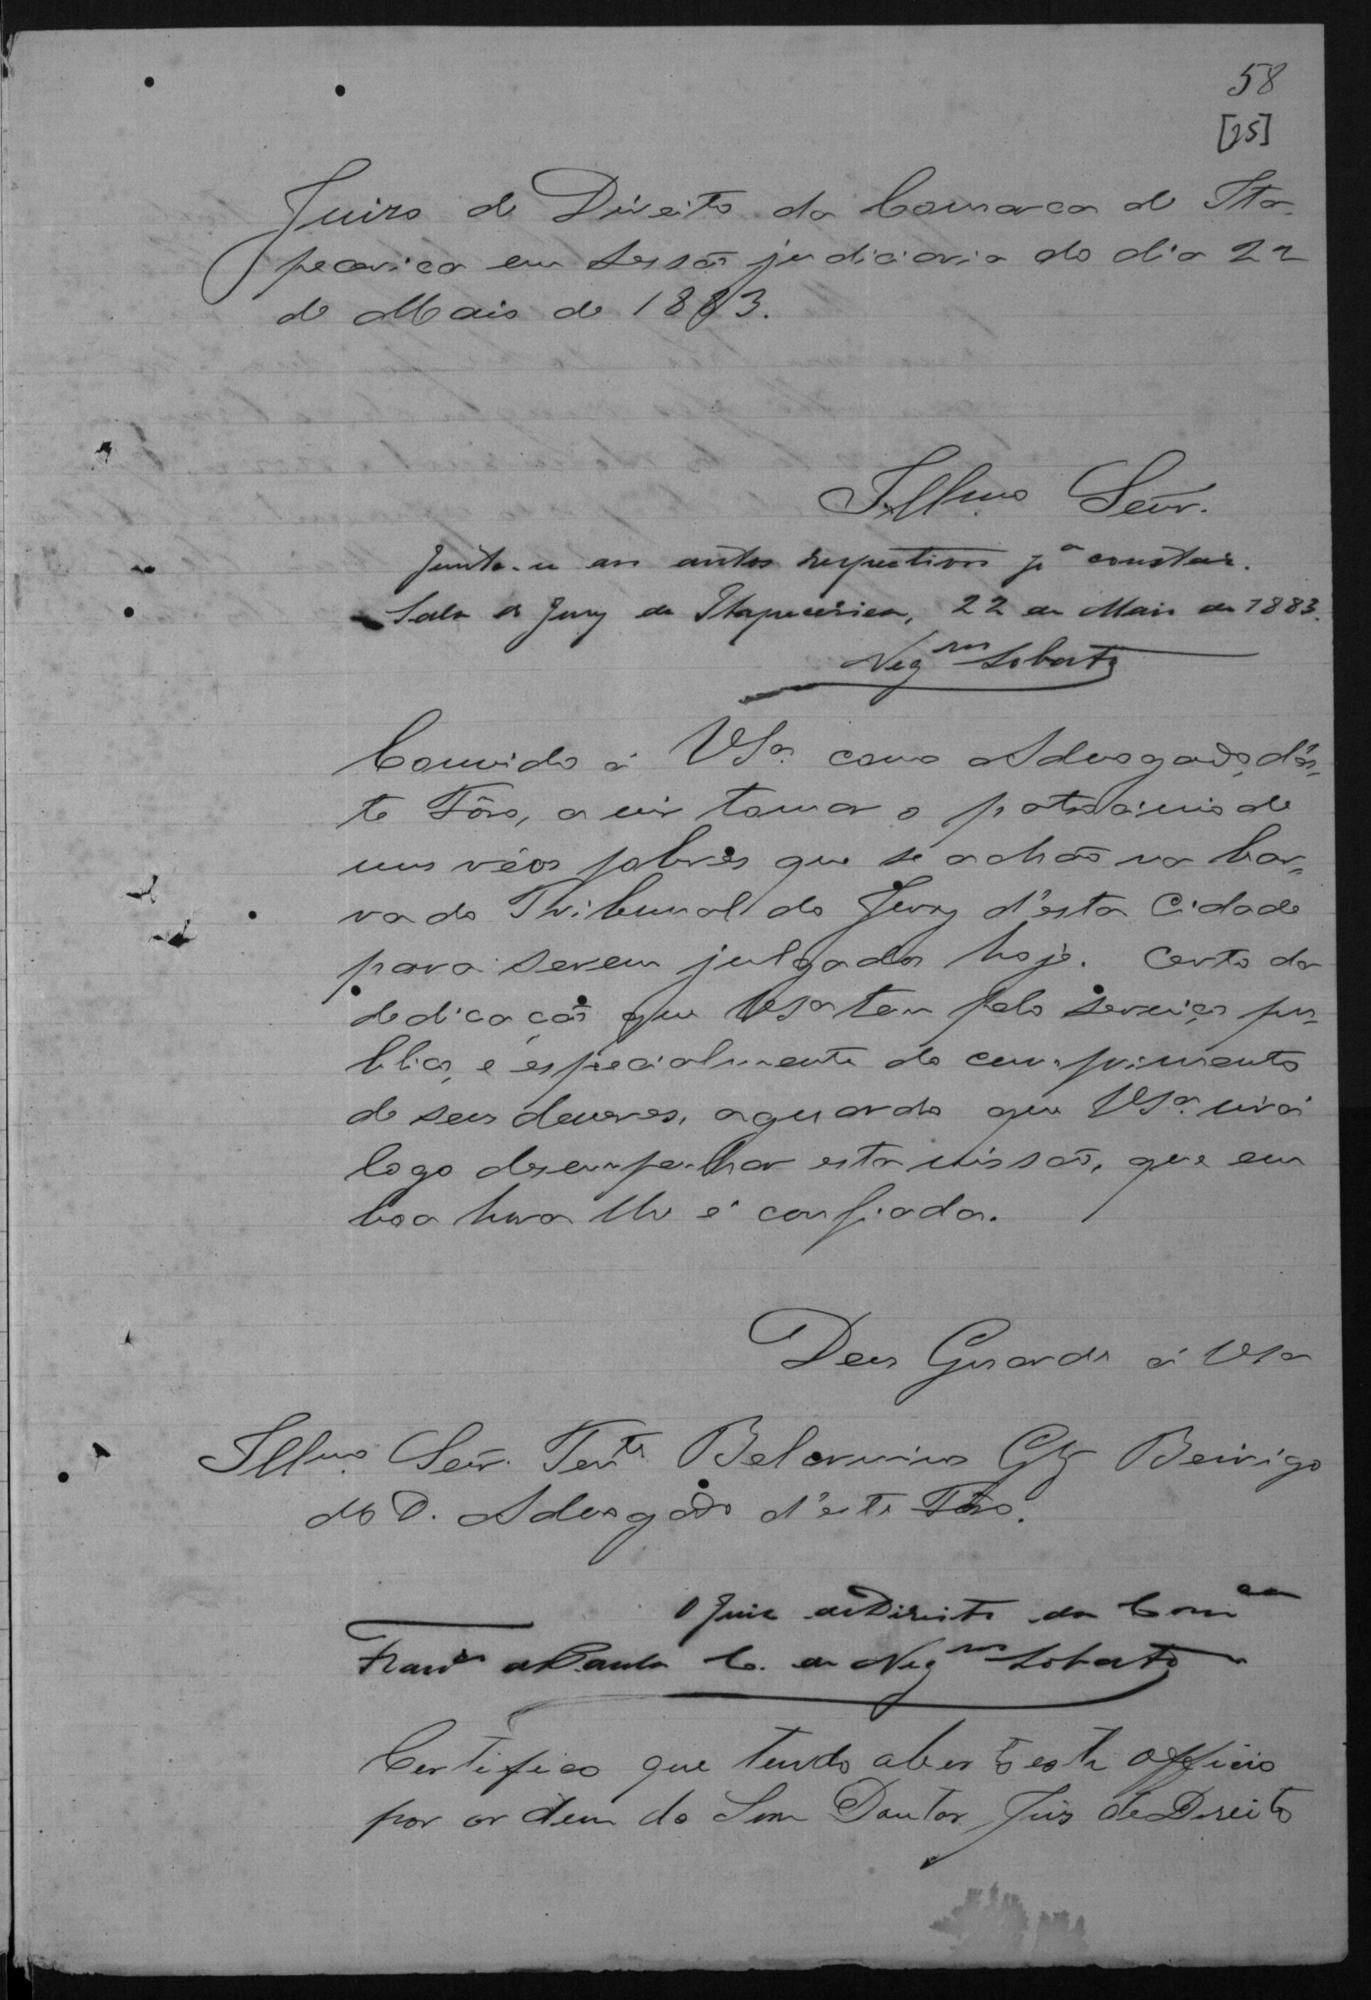 58
[25]
Juizo de Direito da Comarca de Ita-
pecerica em sessão judiciaria do dia 22
de Maio de 1883.
Illmo Señr.
Junte-se aos autos respectivos pª constar.
Sala do Jury de Itapecerica, 22 de Maio de 1883.
Negros Lobato
Convido á VSª como Advogado, d'es-
te Fôro, a vir tomar o patrocinio de
uns réos pobres que se achão na bar-
ra do Tribunal do Jury d'esta Cidade
para serem julgados hoje. Certo da
dedicação que VSª tem pelo serviço pu-
blico, e especialmente do cumprimento
de seus deveres, aguardo que VSª virá
logo desempenhar esta missão, que em
boa hora lhe é confiada.
Deus Guarde á VSª
Illmo Señr. Tente Belarmino Glz Beirigo
DD. Advogado d'este Fôro.
O Juiz de Direito da Comca
Franco de Paula C. de Negros Lobato
Certifico que tendo aberto este officio
por ordem do Snr Doutor Juis de Direito